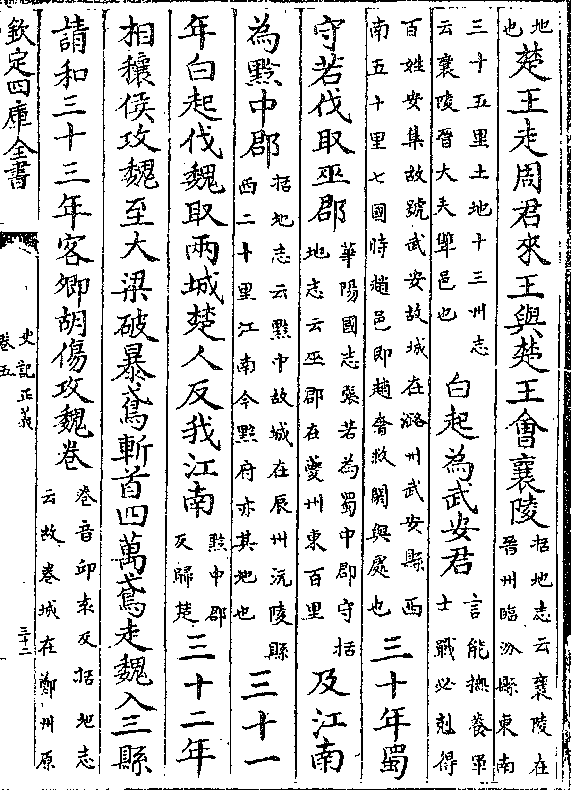 地
也
楚王走周君來王與楚王會襄陵
括地志云襄陵在
晉州臨汾縣東南
三十五里土地十三州志
云襄陵晉大夫犨邑也
白起為武安君
言能撫養軍
士戰必剋得
百姓安集故號武安故城在潞州武安縣西
南五十里七國時趙邑即趙奢救閼與處也
三十年蜀
守若伐取巫郡
華陽國志張若為蜀中郡守括
地志云巫郡在夔州東百里
及江南
為黔中郡
括地志云黔中故城在辰州沅陵縣
西二十里江南今黔府亦其地也
三十一
年白起伐魏取兩城楚人反我江南
黔中郡
反歸楚
三十二年
相穰侯攻魏至大梁破暴鳶斬首四萬鳶走魏入三縣
請和三十三年客卿胡傷攻魏卷
卷音邱袁反括地志
云故卷城在鄭州原
欽定四庫全書
史記正義
卷五
三十二